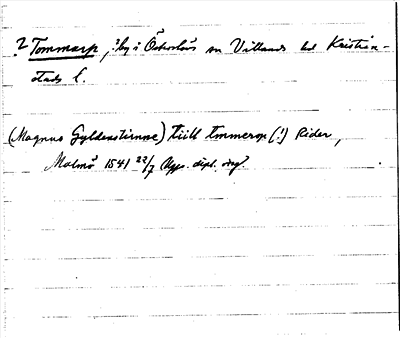 ? Tommarp, ? by i Österlövs sn Villands hd Kristian-
stads l.
(Magnus Gyldenstierne) tiill tommerop (!) Rider,
Malmö 1541 22/7 Upps. dipl. orig.